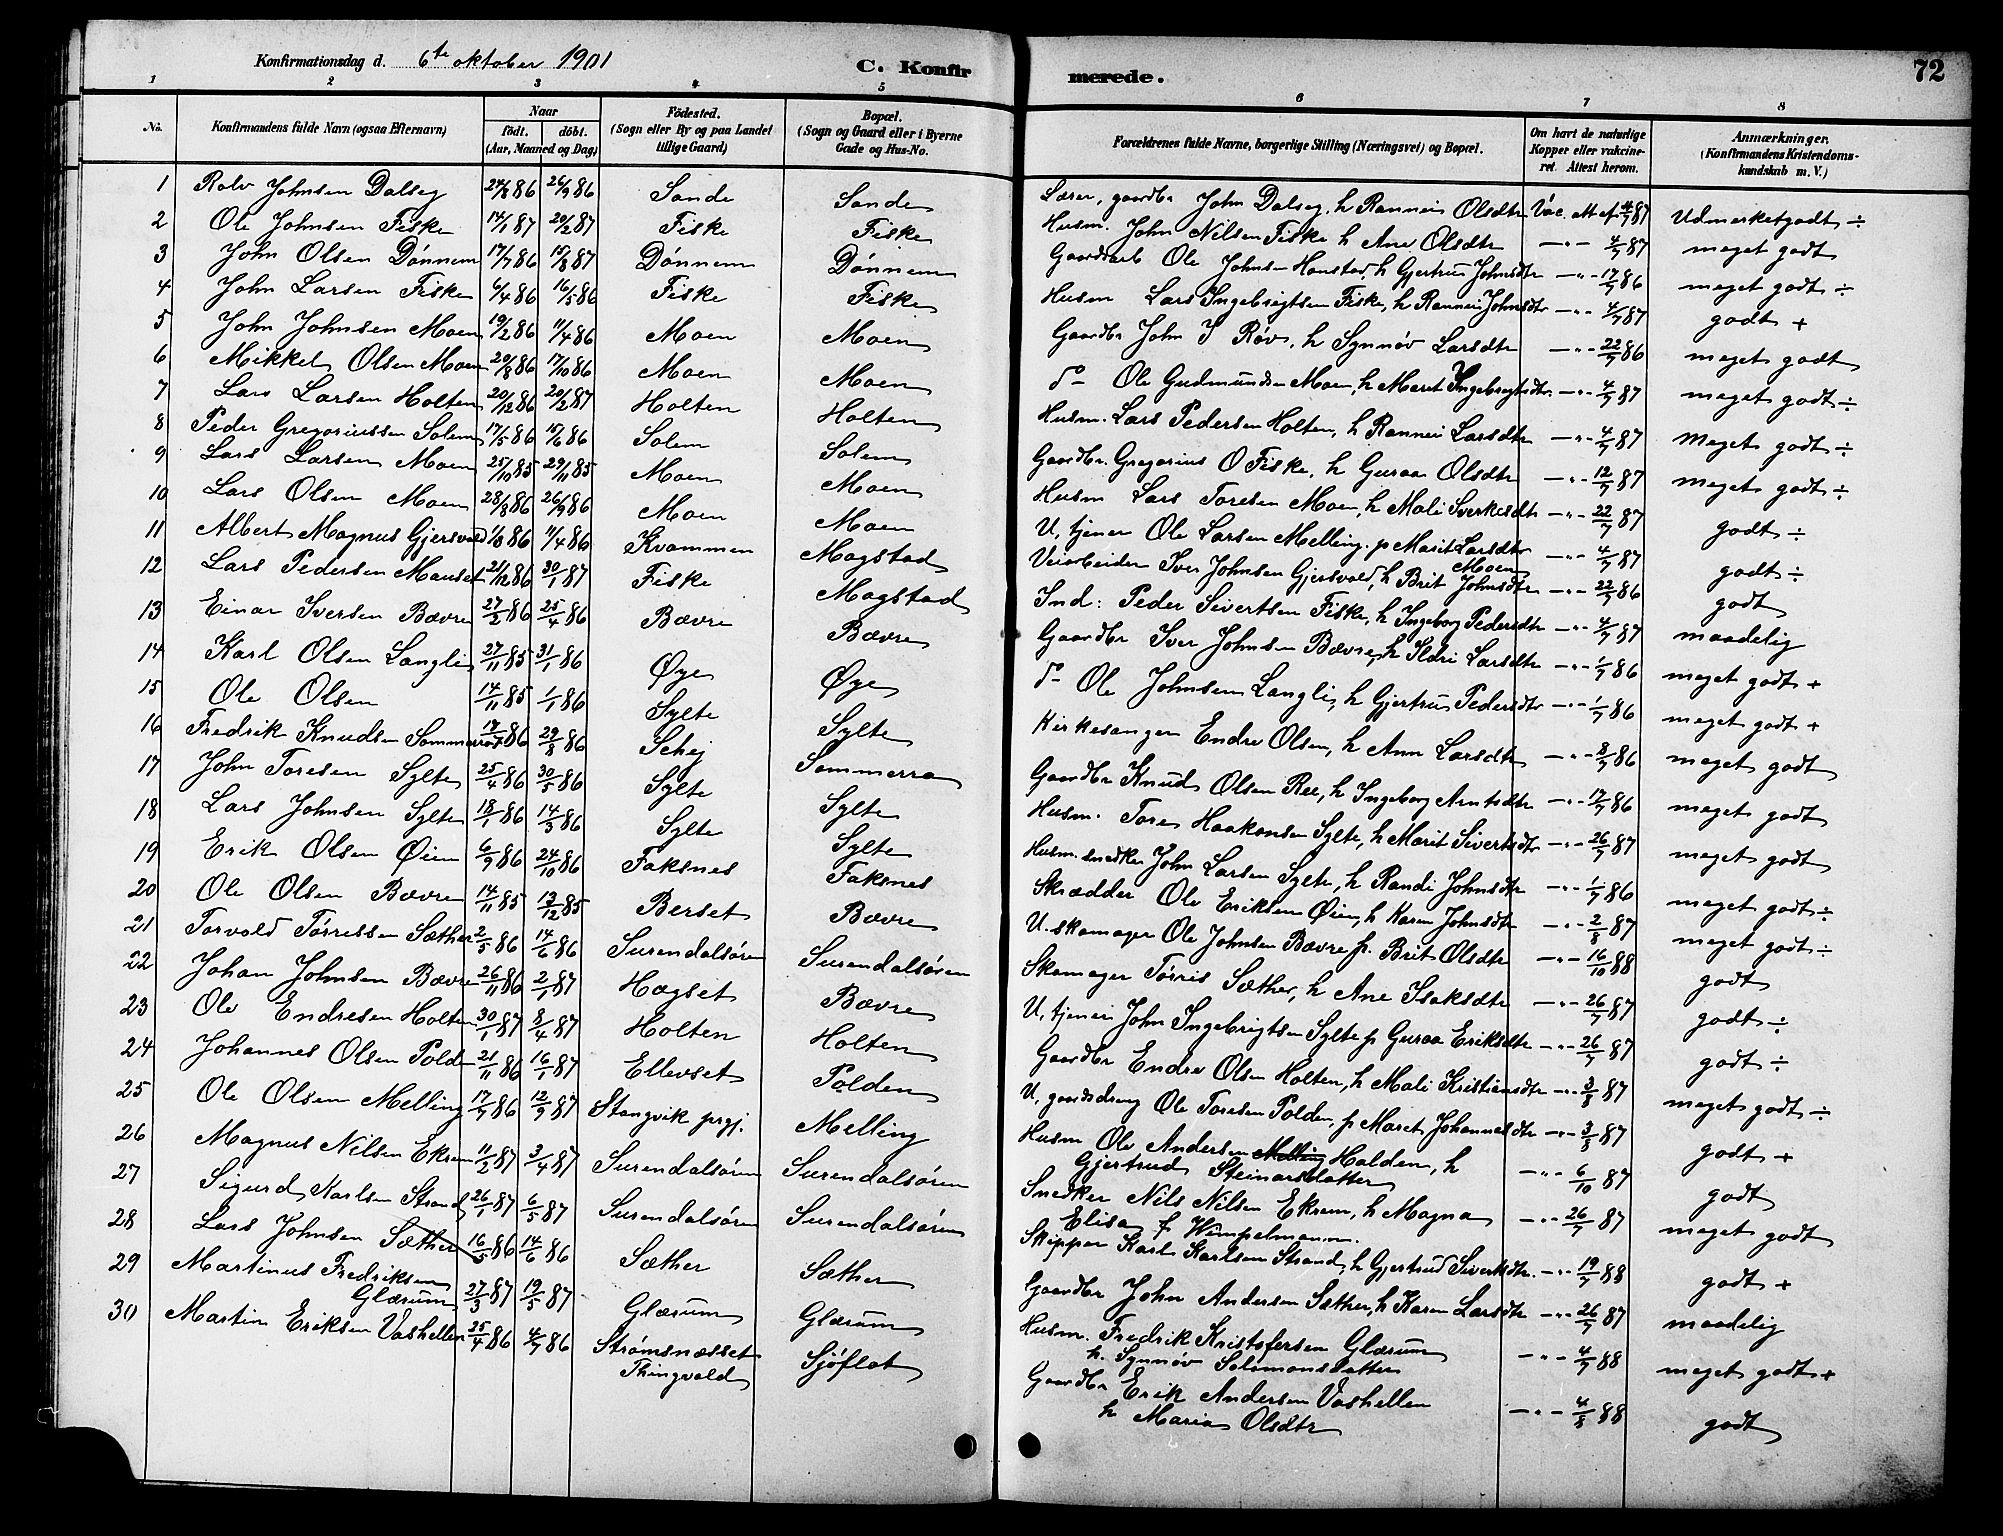 Konfirmationsdag d. 6te oktober 1901 C. Konfirmerede. 72
1 2 3 4 5 6 7 8
No. Konfirmandens fulde Navn (ogsaa Efternavn) Naar født. døbt. (Aar, Maaned og Dag) Fødested. (Sogn eller By og paa Landet tillige Gaard) Bopæl. (Sogn og Gaard eller i Byerne Gade og Hus-No. Forældrenes fulde Navne, borgerlige Stilling (Næringsvei) og Bopæl. Om havt de naturlige Kopper eller vakcineret. Attest herom. Anmærkninger. (Konfirmandens Kristendomskundskab m. V.)
1 Rolv Johnsen Dalseg 24/8 86 26/9 86 Sande Sande Lærer, gaardbr John Dalseg, h Rannei Olsdtr Vac. Att af 4/7 87 Udmerketgodt ÷
2 Ole Johnsen Fiske 14/1 87 20/2 87 Fiske Fiske Husm. John Nilsen Fiske h Ane Olsdtr —"— 4/7 87 meget godt
3 John Olsen Dønnem 17/7 86 15/8 87 Dønnem Dønnem Gaardarb Ole Johnsen Honstad, h Gjertru Johnsdtr —"— 17/7 86 meget godt ÷
4 John Larsen Fiske 6/4 86 16/5 86 Fiske Fiske Husm Lars Ingebrigtsen Fiske, h Rannei Johnsdtr —"— 4/7 87 godt +
5 John Johnsen Moen 19/2 86 11/4 86 Moen Moen Gaardbr John J Røv, h Synnøv Larsdtr —"— 22/7 86 meget godt
6 Mikkel Olsen Moen 20/8 86 17/10 86 Moen Moen do Ole Gudmundsen Moen, h Marit Ingebrigtsdtr —"— 4/7 87 meget godt ÷
7 Lars Larsen Holten 20/12 86 20/2 87 Holten Holten Husm. Lars Pedersen Holten, h Rannei Larsdtr —"— 4/7 87 Meget godt ÷
8 Peder Gregoriussen Solem 17/5 86 15/6 86 Solem Solem Gaardbr. Gregorius O Fiske, h Guraa Olsdtr —"— 12/7 87 meget godt ÷
9 Lars Larsen Moen 25/10 85 29/11 85 Moen Moen Husm Lars Toresen Moen, h Mali Sverkesdtr —"— 22/7 87 godt ÷
10 Lars Olsen Moen 28/8 86 26/9 86 Moen Moen U, tjener Ole Larsen Melling. p Marit Larsdtr Moen —"— 4/7 87 godt ÷
11 Albert Magnus Gjersvold 1/3 86 11/4 86 Kvammen Magstad Veiarbeider Iver Johnsen Gjersvold, h Brit Johnsdtr —"— 22/7 86 godt
12 Lars Pedersen Mauset 21/12 86 30/1 87 Fiske Magstad Ind: Peder Sivertsen Fiske, h Ingeborg Pedersdtr —"— 4/7 87 maadelig
13 Einar Iversen Bævre 27/2 86 25/4 86 Bævre Bævre Gaardbr Iver Johnsen Bævre, h Ildri Larsdtr —"— 1/7 86 meget godt +
14 Karl Olsen Langli 27/11 85 31/1 86 Øye Øye do Ole Johnsen Langli, h Gjertru Pedersdtr —"— 1/7 86 meget godt +
15 Ole Olsen 14/11 85 1/1 86 Sylte Sylte Kirkesanger Endre Olsen, h Ann Larsdtr —"— 8/7 86 meget godt
16 Fredrik Knudsen Sommerrøe 17/7 86 29/8 86 Schej Sommerrø Gaardbr Knud Olsen Ree, h Ingeborg Arntsdtr —"— 17/7 86 meget godt
17 John Toresen Sylte 25/4 86 30/5 86 Sylte Sylte Husm. Tore Haakonsen Sylte, h Marit Sivertsdtr —"— 26/7 87 meget godt
18 Lars Johnsen Sylte 18/1 86 14/3 86 Sylte Sylte Husm. snedker John Larsen Sylte, h Randi Johnsdtr —"— 1/7 86 meget godt ÷
19 Erik Olsen Øien 6/9 86 24/10 86 Faksnes Faksnes Skrædder Ole Eriksen Øien, h Karen Johnsdtr —"— 2/8 87 meget godt ÷
20 Ole Olsen Bævre 14/11 85 13/12 85 Berset Bævre U. skomager Ole Johnsen Bævre p. Brit Olsdtr —"— 16/10 88 godt
21 Torvald Tørressen Sæther 2/5 86 14/6 86 Surendalsøren Surendalsøren Skomager Tørris Sæther, h Ane Isaksdtr —"— 26/7 87 godt ÷
22 Johan Johnsen Bævre 26/11 86 2/1 87 Hagset Bævre U, tjener John Ingebrigtsen Sylte p Guraa Eriksdtr —"— 26/7 87 godt ÷
23 Ole Endresen Holten 30/1 87 8/4 87 Holten Holten Gaardbr Endre Olsen Holten, h Mali Kristiansdtr —"— 3/8 87 meget godt ÷
24 Johannes Olsen Polden 21/11 86 16/1 87 Ellevset Polden U, gaardsdreng Ole Toresen Polden, p Maret Johannesdtr —"— 3/8 87 godt +
25 Ole Olsen Melling 17/7 86 12/9 87 Stangvik prgj. Melling Husm Ole Andersen Melling Halden, h Gjertrud Steinarsdatter —"— 6/10 87 godt
26 Magnus Nilsen Ekrem 11/2 87 3/4 87 Surendalsøren Surendalsøren Snedker Nils Nilsen Ekrem, h Magna Elisa f Wimpelmann. —"— 26/7 87 meget godt
27 Sigurd Karlsen Strand 26/1 87 6/5 87 Surendalsøren Surendalsøren Skipper Karl Karlsen Strand, h Gjertrud Siverksdtr. —"— 19/7 88 godt +
28 Lars Johnsen Sæther 16/5 86 14/6 86 Sæther Sæther Gaardbr John Andersen Sæther, h Karen Larsdtr —"— 26/7 87 maadelig
29 Martinus Fredriksen Glærum 27/3 87 19/5 87 Glærum Glærum Husm. Fredrik Kristofersen Glærum h. Synnøv Salomonsdatter —"— 4/7 88 meget godt +
30 Martin Eriksen Vashellen 25/4 86 4/7 86 Strømsnæsset Thingvold Sjøflot Gaardbr Erik Andersen Vashellen h Maria Olsdtr —"— 4/8 88 godt